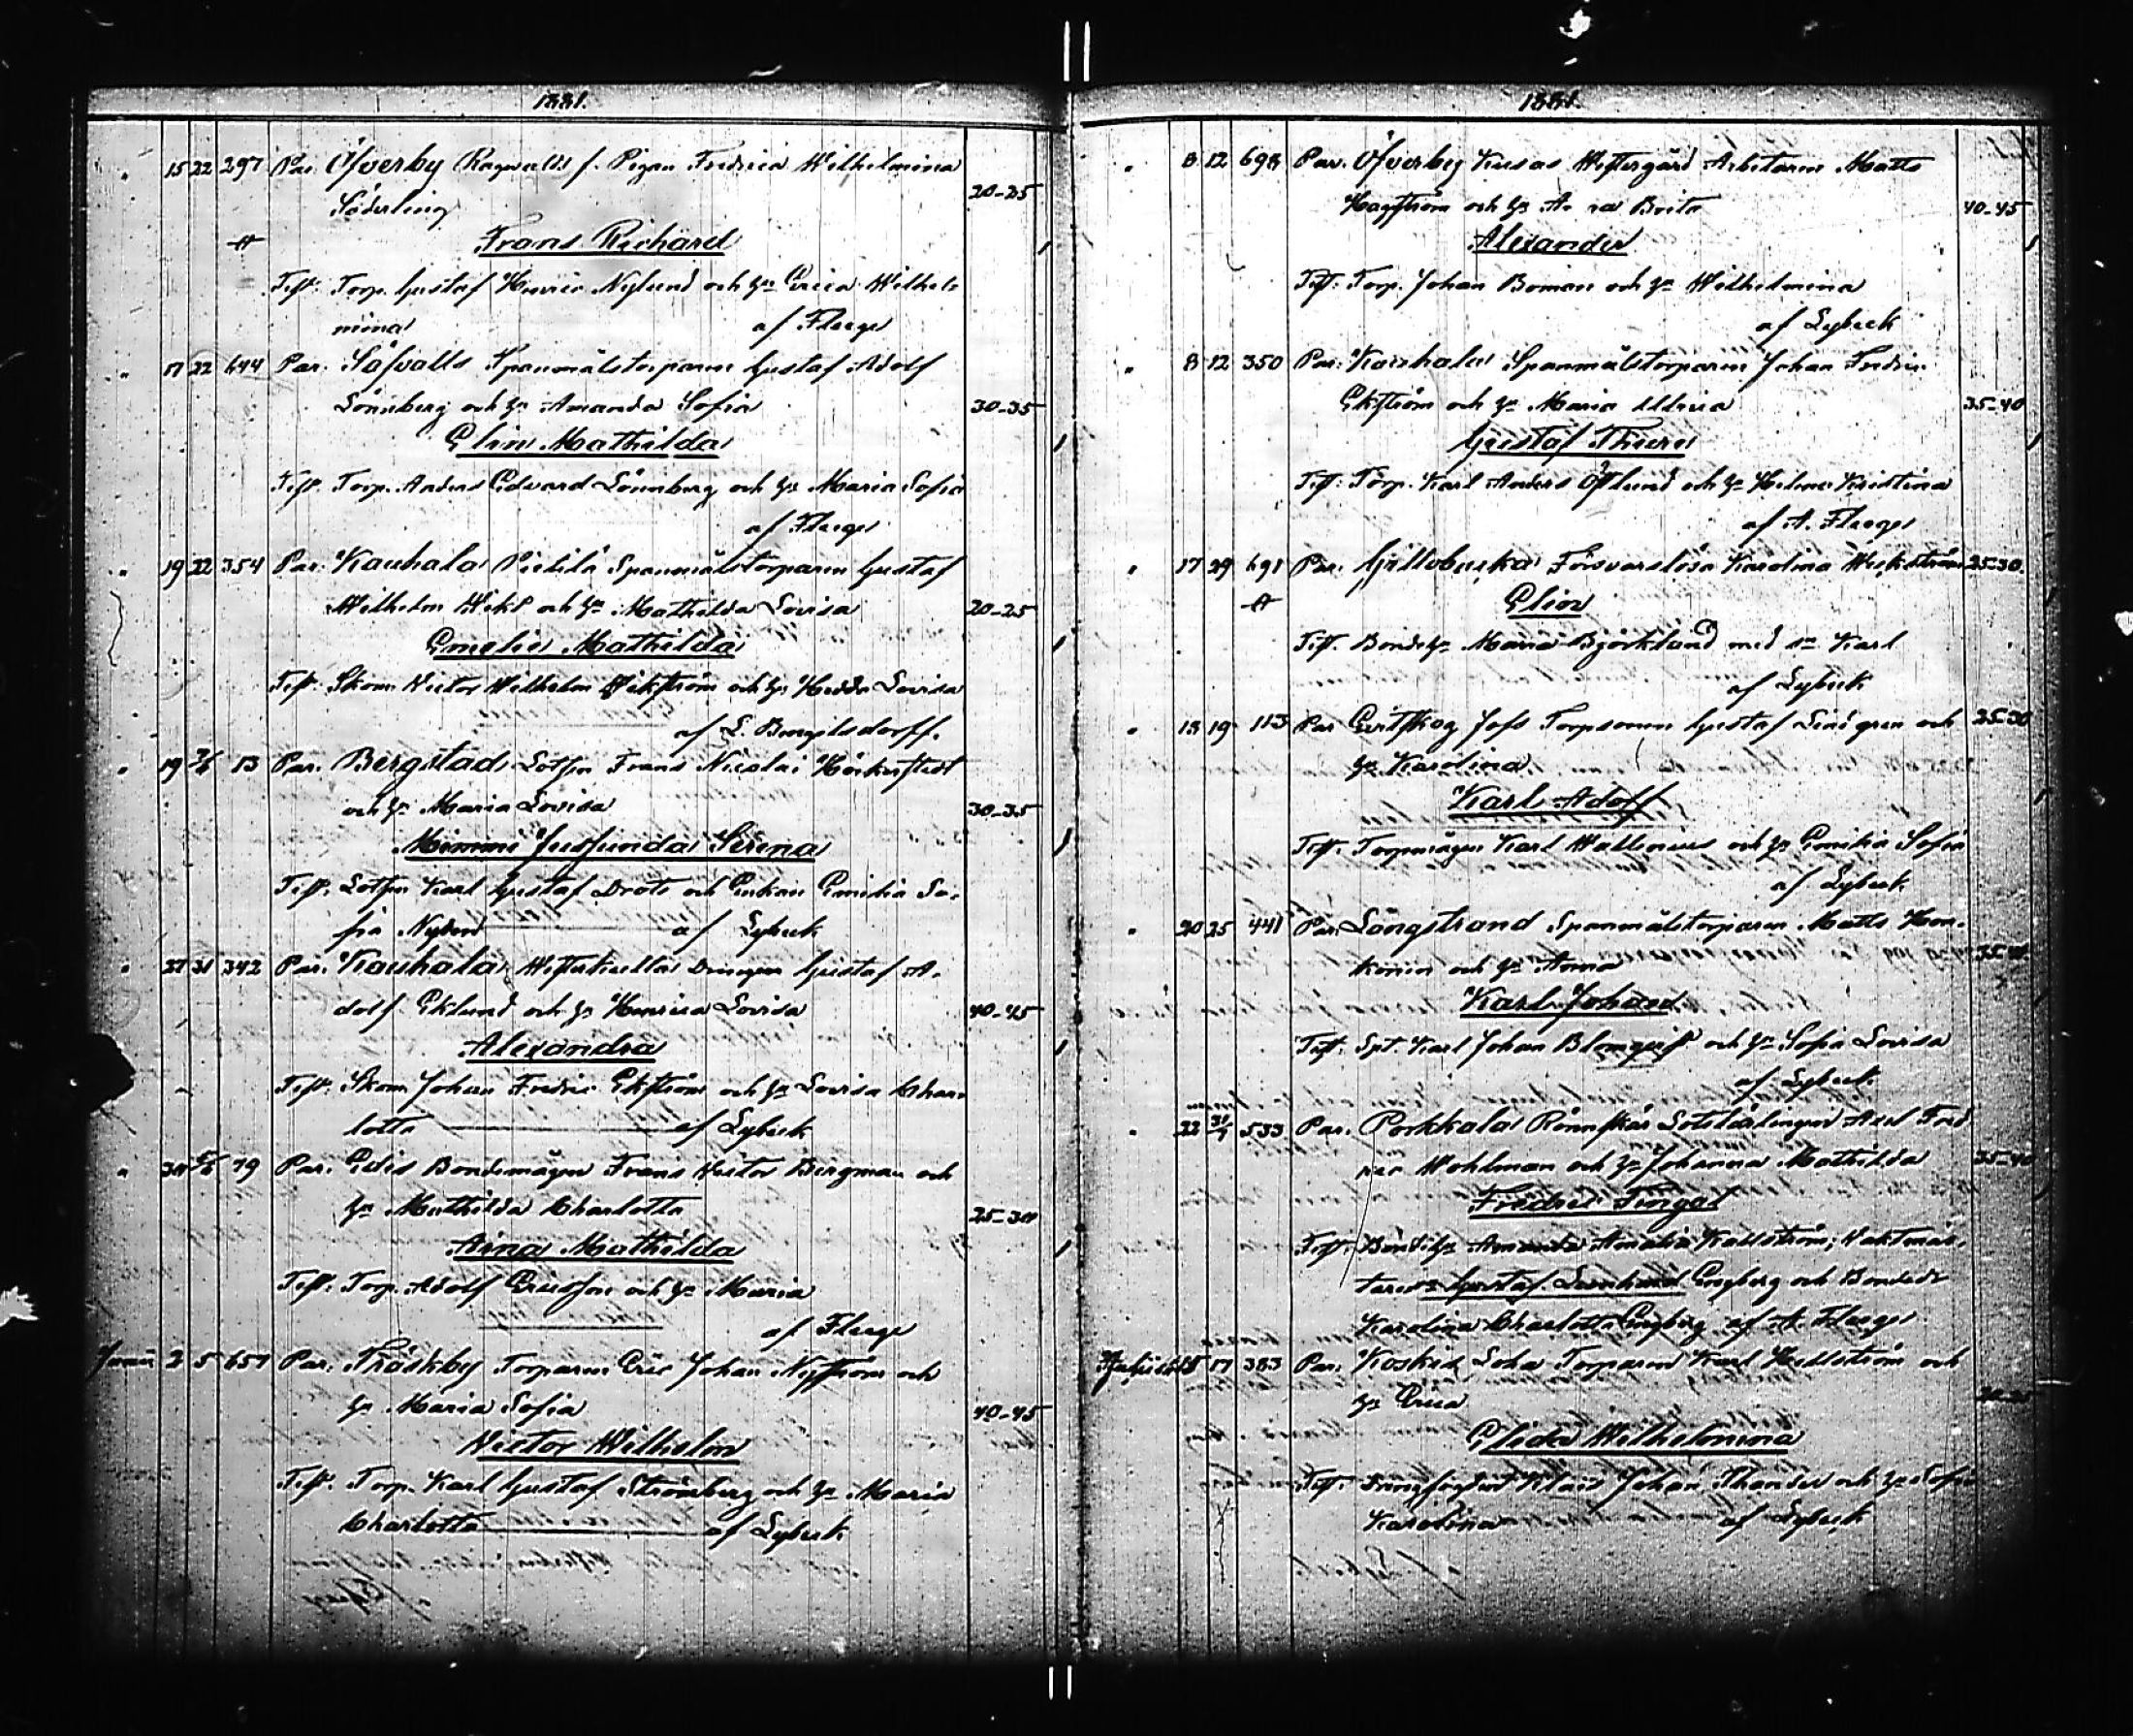 1881.
" 15 22 297 Par. Öfverby Ragvalds f. Pigan Fredrica Wilhelmina
Söderling 20-25
Frans Richard 1
Test. Torp. Gustaf Henric Nylund och h:u Erica Wilhel-
mina af Fleege
" 17 22 644 Par. Spanmålstorparen Gustaf Adolf
Lönnberg och h:u Amanda Sofia 30-35
Elin Mathilda 1
Test. Torp. Anders Edvard Lönnberg och h:u Maria Sofia
af Fleege
" 19 22 354 Par. Kauhala Pickilä Spanmålstorparen Gustaf
Wilhelm och h:u Mathilda Lovisa 20-25
Emelie Mathilda 1
Test. Skom. Victor Wilhelm Wikström och h:u Hedda Lovisa
af L. Bengelsdorff.
" 19 13 Par. Bergstad Lotsen Frans Nicolai
och h:u Maria Lovisa 30-35
Mimmi Serena 1
Test. Lotsen Karl Gustaf och Enkan Emilia So-
fia af Lybeck
" 27 31 342 Par. Kauhala Drängen Gustaf A-
dolf Eklund och h:u Henrica Lovisa 40-45
Alexandra 1
Test. Skom. Johan Fredric Ekström och h:u Lovisa Char-
lotta af Lybeck
" 30 79 Par. Edis Bondemågen Frans Victor Bergman och
h:u Mathilda Charlotta 25-30
Aina Mathilda 1
Test. Torp. Adolf Ericsson och h:u Maria
af Fleege
Junii 2 5 657 Par. Träskby Torparen Eric Johan Nyström och
h:u Maria Sofia 40-45
Victor Wilhelm
Test. Torp. Karl Gustaf Strömberg och h:u Maria
Charlotta af Lybeck
1881.
" 8 12 698 Par. Öfverby Kusas Westergård Arbetaren Matts
Hagström och h:u Brita 40-45
Alexander 1
Test. Torp. Johan Boman och h:u Wilhelmina
af Lybeck
" 8 12 350 Par. Kauhala Spanmålstorparen Johan Fredric
Ekström och h:u Maria Ulrica 35-40
Gustaf Thure 1
Test. Torp. Karl Anders Östlund och h:u Helena Kristina
af A. Fleege
" 17 29 691 Par. Gillobacka Försvarslösa Karolina Weckström 25-30
Elin
Test. Bondeh:u Maria Björklund med s:n Karl
af Lybeck
" 18 19 113 Par. Evitskog Jofs Torpsonen Gustaf Lindgren och 25-30
h:u Karolina
Karl Adolf 1
Test. Torpmågen Karl Wallenius och h:u Emilia Sofia
af Lybeck
" 20 25 441 Par. Långstrand Spanmålstorparen Matts Hon-
konen och h:u Anna
Karl Johan
Test. Spt. Karl Johan Blomqvist och h:u Sofia Lovisa
af Lybeck
" 22 533 Par. Porkkala Rönnskär Lotslärlingen Axel
Wohlman och h:u Johanna Mathilda 35-40
Fredric Fingal
Test. Bondeh:u Amanda Amalia Kallström, Vaktmäs-
Gustaf Leonhard Engberg och Bonded:r
Karolina Charlotta Engberg af A. Fleege
17 383 Par. Koskis Loha Torparen Karl Hellström och
h:u Erica
Wilhelmina
Test. Johan Thander och h:u Sofia
Karolina af Lybeck